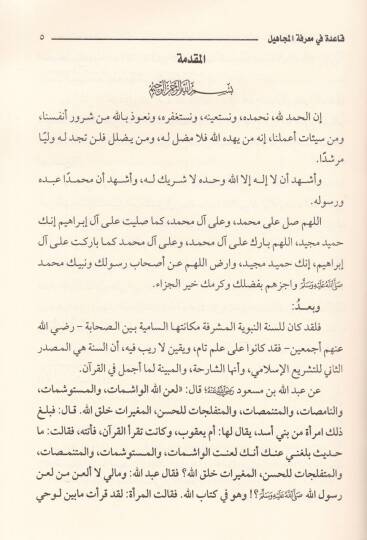 قاعدة في معرفة المجاهيل ٥
المقدمة
بسم الله الرحمن الرحيم
إن الحمد لله، نحمده، ونستعينه، ونستغفره، ونعوذ بالله من شرور أنفسنا،
ومن سيئات أعملنا، إنه من يهده الله فلا مضل له، ومن يضلل فلن تجد له وليًا
مرشدًا.
وأشهد أن لا إله إلا الله وحده لا شريك له، وأشهد أن محمدًا عبده
ورسوله.
اللهم صل على محمد، وعلى آل محمد، كما صليت على آل إبراهيم إنك
حميد مجيد، اللهم بارك على آل محمد، وعلى آل محمد كما باركت على آل
إبراهيم، إنك حميد مجيد، وارض اللهم عن أصحاب رسولك ونبيك محمد
ﷺ واجزهم بفضلك وكرمك خير الجزاء.
وبعدُ:
فلقد كان للسنة النبوية المشرفة مكانتها السامية بين الصحابة – رضي الله
عنهم أجمعين– فقد كانوا على علم تام، ويقين لا ريب فيه، أن السنة هي المصدر
الثاني للتشريع الإسلامي، وأنها الشارحة، والمبينة لما أجمل في القرآن.
عن عبد الله بن مسعود ؛ قال: «لعن الله الواشمات، والمستوشمات،
والنامصات، والمتنمصات، والمتفلجات للحسن، المغيرات خلق الله. قال: فبلغ
ذلك امرأة من بني أسد، يقال لها: أم يعقوب، وكانت تقرأ القرآن، فأتته، فقالت: ما
حديث بلغني عنك أنك لعنت الواشمات، والمستوشمات، والمتنمصات،
والمتفلجات للحسن، المغيرات خلق الله؟ فقال عبد الله: ومالي لا ألعن من لعن
رسول الله ﷺ؟! وهو في كتاب الله. فقالت المرأة: لقد قرأت مابين لوحي